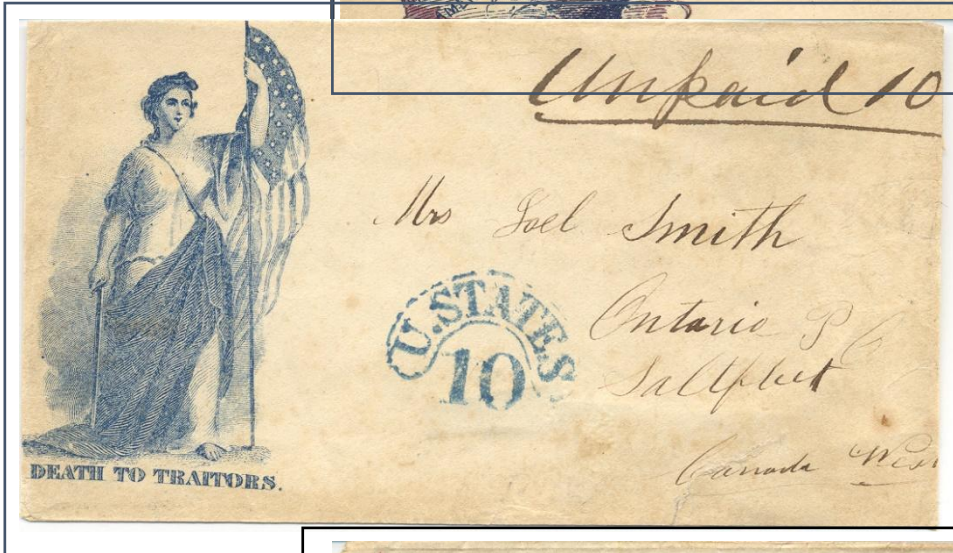 Unpaid 10
Mrs Joel Smith
U. STATES
10
Ontario P
Saltfleet
Canada West
DEATH TO TRAITORS.